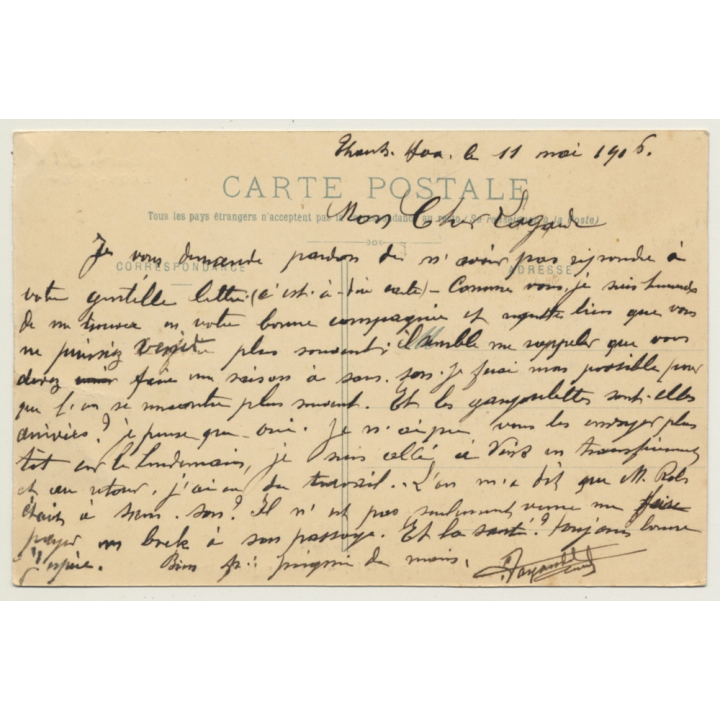 Thanh-Hoa. le 11 mai 1906.
CARTE POSTALE
Tous les pays étrangers n'acceptent pas la au (Se à la Poste)
Mon Cher
CORRESPONDANCE
ADRESSE
Je vous demande pardon de n'avoir pas répondre à
votre gentille lettre (c'est-à-dire carte) - Comme vous, je suis
de me trouver en votre bonne compagnie et regrette bien que vous
ne puissiez venir plus souvent; il semble me rappeler que vous
devez faire une saison à Sam-son. je ferai mon possible pour
que l'on se rencontre plus souvent. Et les gargoulettes sont-elles
arrivées? je pense que oui. Je n'ai pu vous les envoyer plus
tôt car le lendemain, je suis allé à Vinh en
et au retour, j'ai eu du travail.. L'on m'a dit que M.
était à Sam-son? Il n'est pas seulement venu me faire
payer un bock à son passage. Et la santé? toujours bonne
j'espère. Bien poignée de mains.